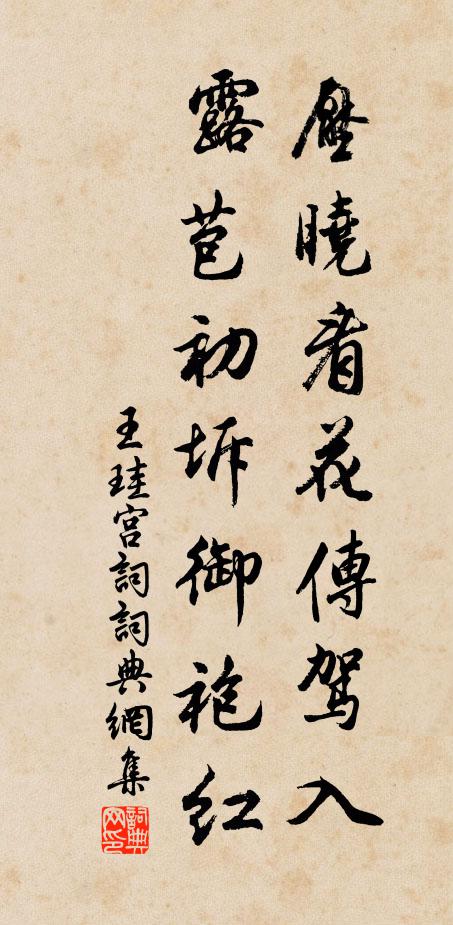 壓曉看花傳駕入
露苞初坼御袍紅
王珪宮詞詞典網集
詞典网印